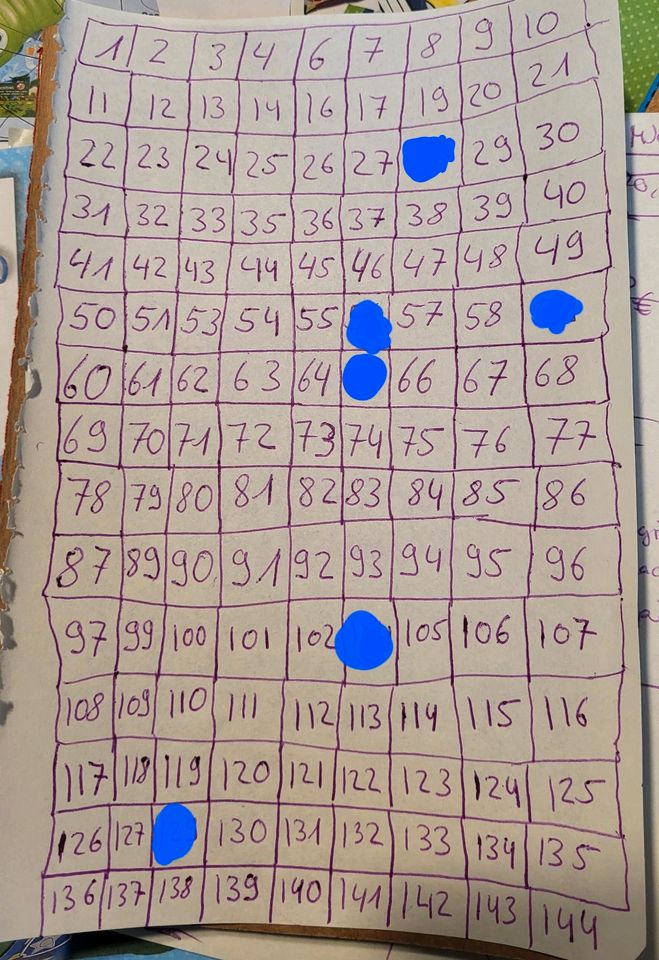 1 2 3 4 6 7 8 9 10
11 12 13 14 16 17 19 20 21
22 23 24 25 26 27 29 30
31 32 33 35 36 37 38 39 40
41 42 43 44 45 46 47 48 49
50 51 53 54 55 57 58
60 61 62 63 64 66 67 68
69 70 71 72 73 74 75 76 77
78 79 80 81 82 83 84 85 86
87 89 90 91 92 93 94 95 96
97 99 100 101 102 105 106 107
108 109 110 111 112 113 114 115 116
117 118 119 120 121 122 123 124 125
126 127 130 131 132 133 134 135
136 137 138 139 140 141 142 143 144